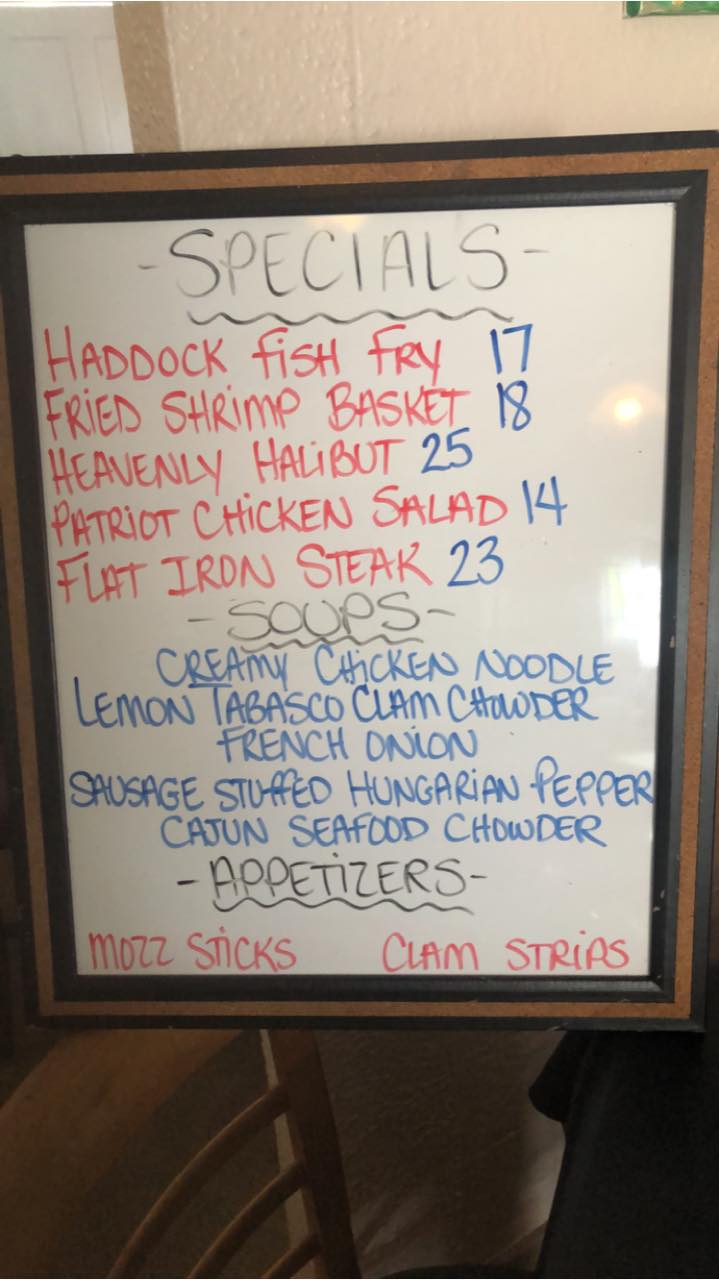 -SPECIALS-
HADDOCK FISH FRY 17
FRIED SHRIMP BASKET 18
HEAVENLY HALIBUT 25
PATRIOT CHICKEN SALAD 14
FLAT IRON STEAK 23
-SOUPS-
CREAMY CHICKEN NOODLE
LEMON TABASCO CLAM CHOWDER
FRENCH ONION
SAUSAGE STUFFED HUNGARIAN PEPPER
CAJUN SEAFOOD CHOWDER
-APPETIZERS-
MOZZ STICKS CLAM STRIPS